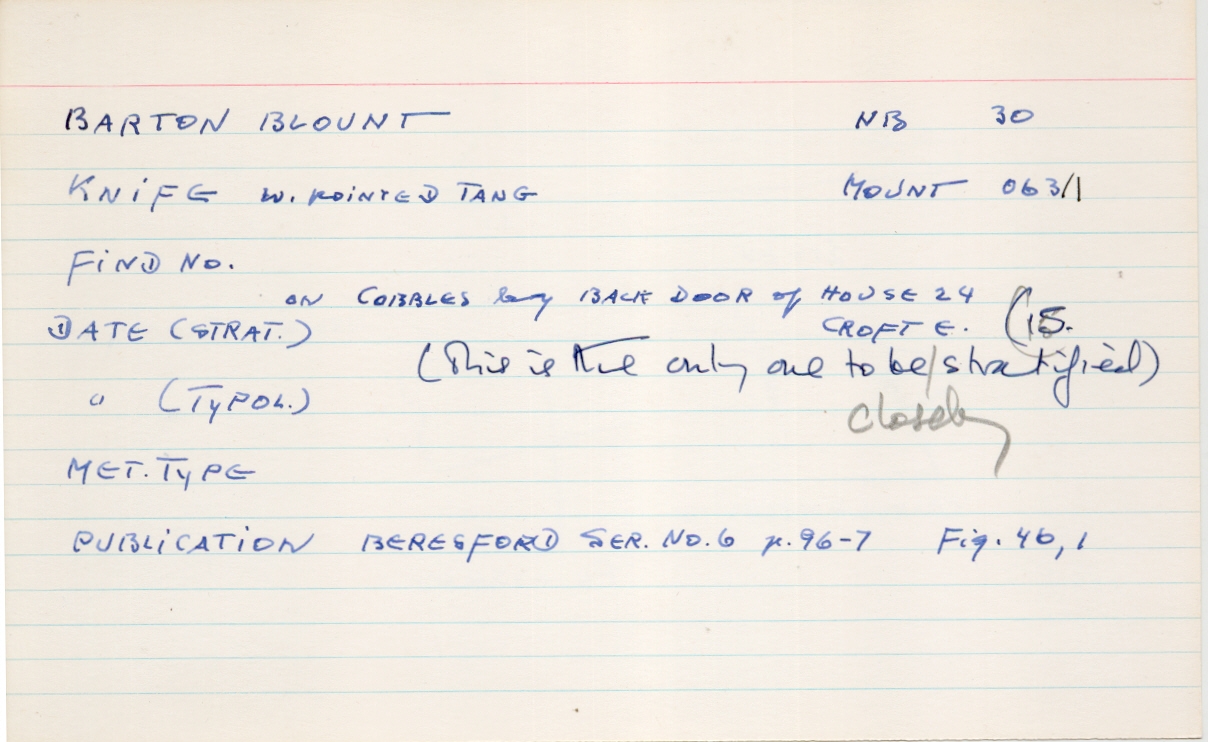 BARTON BLOUNT NB 30
KNIFE w. POINTED TANG MOUNT 063/1
FIND NO.
ON COBBLES by BACK DOOR of HOUSE 24
DATE (STRAT.) CROFT E. C15.
(This is the only one to be/stratified)
" (TYPOL.) closely
MET. TYPE
PUBLICATION BERESFORD SER. NO. 6 p. 96-7 Fig. 46, 1